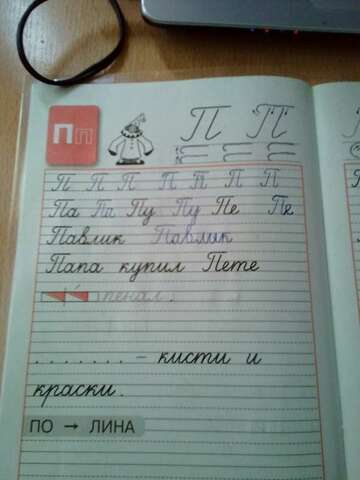 Пп
П П
П П П П П П П
Па Па Пу Пу Пе Пе
Павлик Павлик
Папа купил Пете
(пенал).
. . . . . . . – кисти и
краски.
ПО → ЛИНА